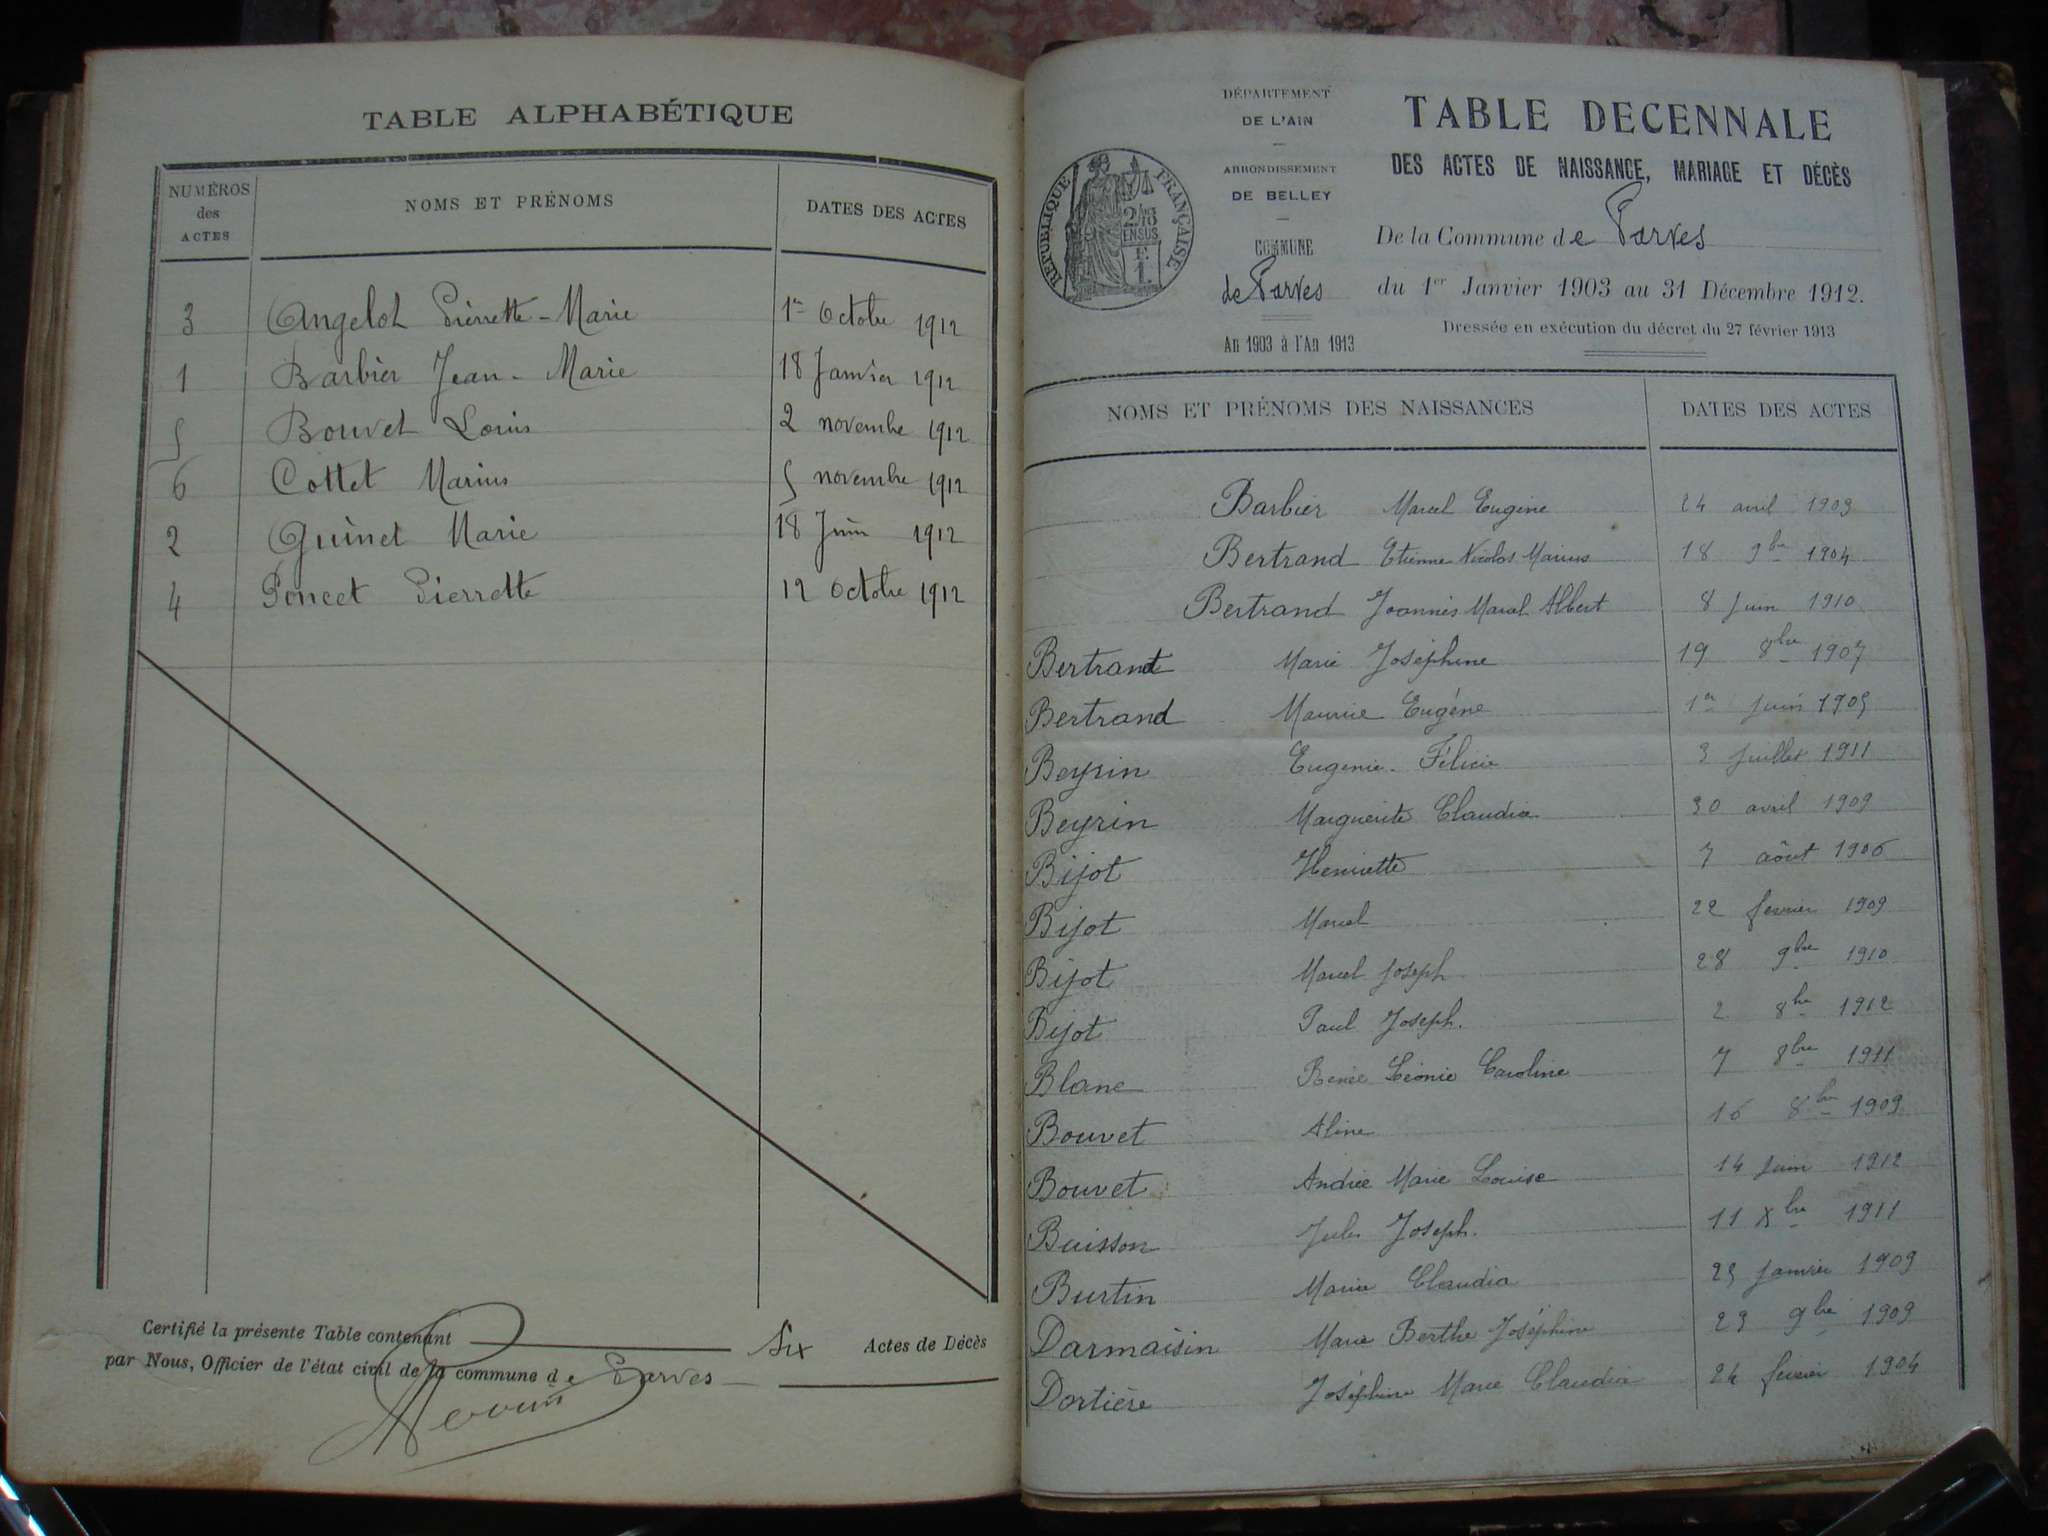 TABLE ALPHABÉTIQUE
NUMÉROS des ACTES NOMS ET PRÉNOMS DATES DES ACTES
3 Angelot Pierrette-Marie 1er Octobre 1912
1 Barbier Jean-Marie 18 Janvier 1912
5 Bouvet Louis 2 novembre 1912
6 Cottet Marius 5 novembre 1912
2 Guinet Marie 18 Juin 1912
4 Poncet Pierrette 12 Octobre 1912
Certifié la présente Table contenant Six Actes de Décès
par Nous, Officier de l'état civil de la commune de Parves
DÉPARTEMENT
DE L'AIN
ARRONDISSEMENT
DE BELLEY
COMMUNE
de Parves
An 1903 à l'An 1913
RÉPUBLIQUE FRANÇAISE
TABLE DECENNALE
DES ACTES DE NAISSANCE, MARIAGE ET DÉCÈS
De la Commune de Parves
du 1er Janvier 1903 au 31 Décembre 1912.
Dressée en exécution du décret du 27 février 1913
NOMS ET PRÉNOMS DES NAISSANCES DATES DES ACTES
Barbier Marcel Eugène 24 avril 1903
Bertrand Etienne Nicolas Marius 18 9bre 1904
Bertrand Joannès Marcel Albert 8 Juin 1910
Bertrand Marie Joséphine 19 8bre 1907
Bertrand Maurice Eugène 1er Juin 1905
Beyrin Eugenie-Félicie 3 Juillet 1911
Beyrin Marguerite Claudia 30 avril 1909
Bijot Henriette 7 aôut 1906
Bijot Marcel 22 fevrier 1909
Bijot Marcel Joseph 28 9bre 1910
Bijot Paul Joseph. 2 8bre 1912
Blanc Renée Léonie Caroline 7 8bre 1911
Bouvet Aline 16 8bre 1909
Bouvet Andrée Marie Louise 14 Juin 1912
Buisson Jules Joseph. 11 Xbre 1911
Burtin Marie Claudia 25 Janvier 1909
Darmaisin Marie Berthe Joséphine 29 9bre 1909
Dortière Joséphine Marie Claudia 24 fevrier 1904